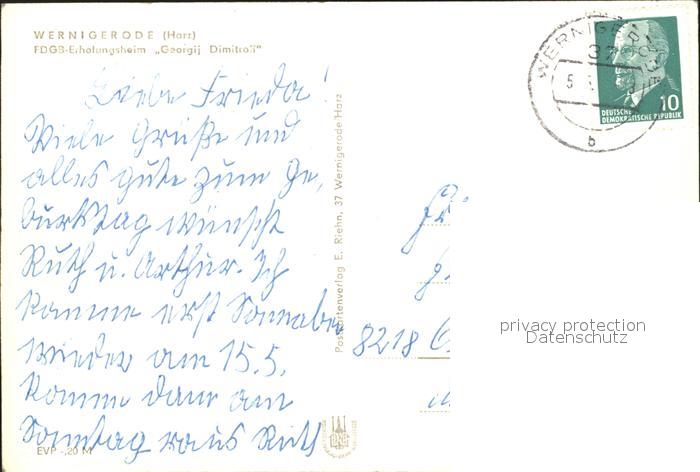 WERNIGERODE (Harz)
FDGB-Erholungsheim „Georgij Dimitroff"
Liebe Frieda!
Viele Grüße und
alles gute zum Ge,
burtstag wünscht
Ruth u. Arthur. Ich
komme erst Sonnabe
wieder am 15.5.
komme dann am
Sonntag raus Ruth
EVP -,20 M
Postkartenverlag E. Riehn, 37 Wernigerode/Harz
WERNIGERODE
37
5
b
10
DEUTSCHE
DEMOKRATISCHE REPUBLIK
8218
privacy protection
Datenschutz